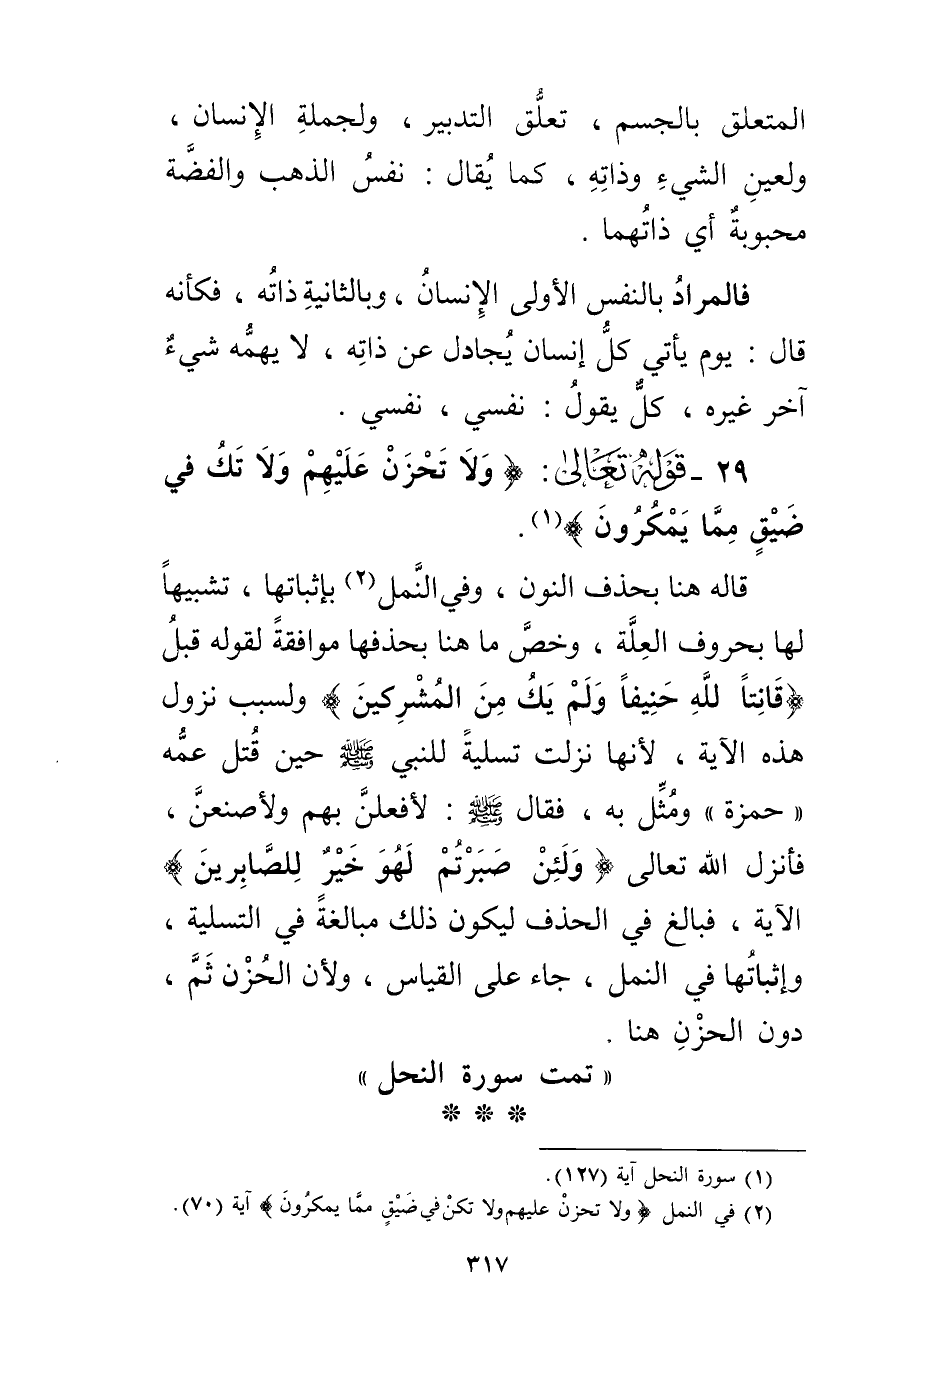 المتعلق بالجسم ، تعلُّق التدبير ، ولجملةِ الإِنسان ،
ولعينِ الشيءِ وذاتِهِ ، كما يُقال : نفسُ الذهب والفضَّة
محبوبةٌ أي ذاتُهما .
فالمرادُ بالنفس الأولى الإِنسانُ ، وبالثانيةِ ذاتُه ، فكأنه
قال : يوم يأتي كلُّ إنسان يُجادل عن ذاتِه ، لا يهمُّه شيءٌ
آخر غيره ، كلٌّ يقولُ : نفسي ، نفسي .
٢٩ - قَوْلُهُ تَعَالَىٰ : ﴿ وَلَا تَحْزَنْ عَلَيْهِمْ وَلَا تَكُ في
ضَيْقٍ مِمَّا يَمْكُرُونَ ﴾(١) .
قاله هنا بحذف النون ، وفي النَّمل(٢) بإثباتها ، تشبيهاً
لها بحروف العِلَّة ، وخصَّ ما هنا بحذفها موافقةً لقوله قبلُ
﴿قَانِتاً للَّهِ حَنِيفاً وَلَمْ يَكُ مِنَ المُشْرِكينَ ﴾ ولسبب نزول
هذه الآية ، لأنها نزلت تسليةً للنبي ﷺ حين قُتل عمُّه
« حمزة » ومُثِّل به ، فقال ﷺ : لأفعلنَّ بهم ولأصنعنَّ ،
فأنزل الله تعالى ﴿ وَلَئِنْ صَبَرْتُمْ لَهُوَ خَيْرٌ لِلصَّابِرينَ ﴾
الآية ، فبالغ في الحذف ليكون ذلك مبالغةً في التسلية ،
وإثباتُها في النمل ، جاء على القياس ، ولأن الحُزْن ثَمَّ ،
دون الحزْنِ هنا .
« تمت سورة النحل »
* * *
(١) سورة النحل آية (١٢٧).
(٢) في النمل ﴿ ولا تحزنْ عليهم ولا تكنْ في ضَيْقٍ ممَّا يمكرُونَ ﴾ آية (٧٠).
٣١٧